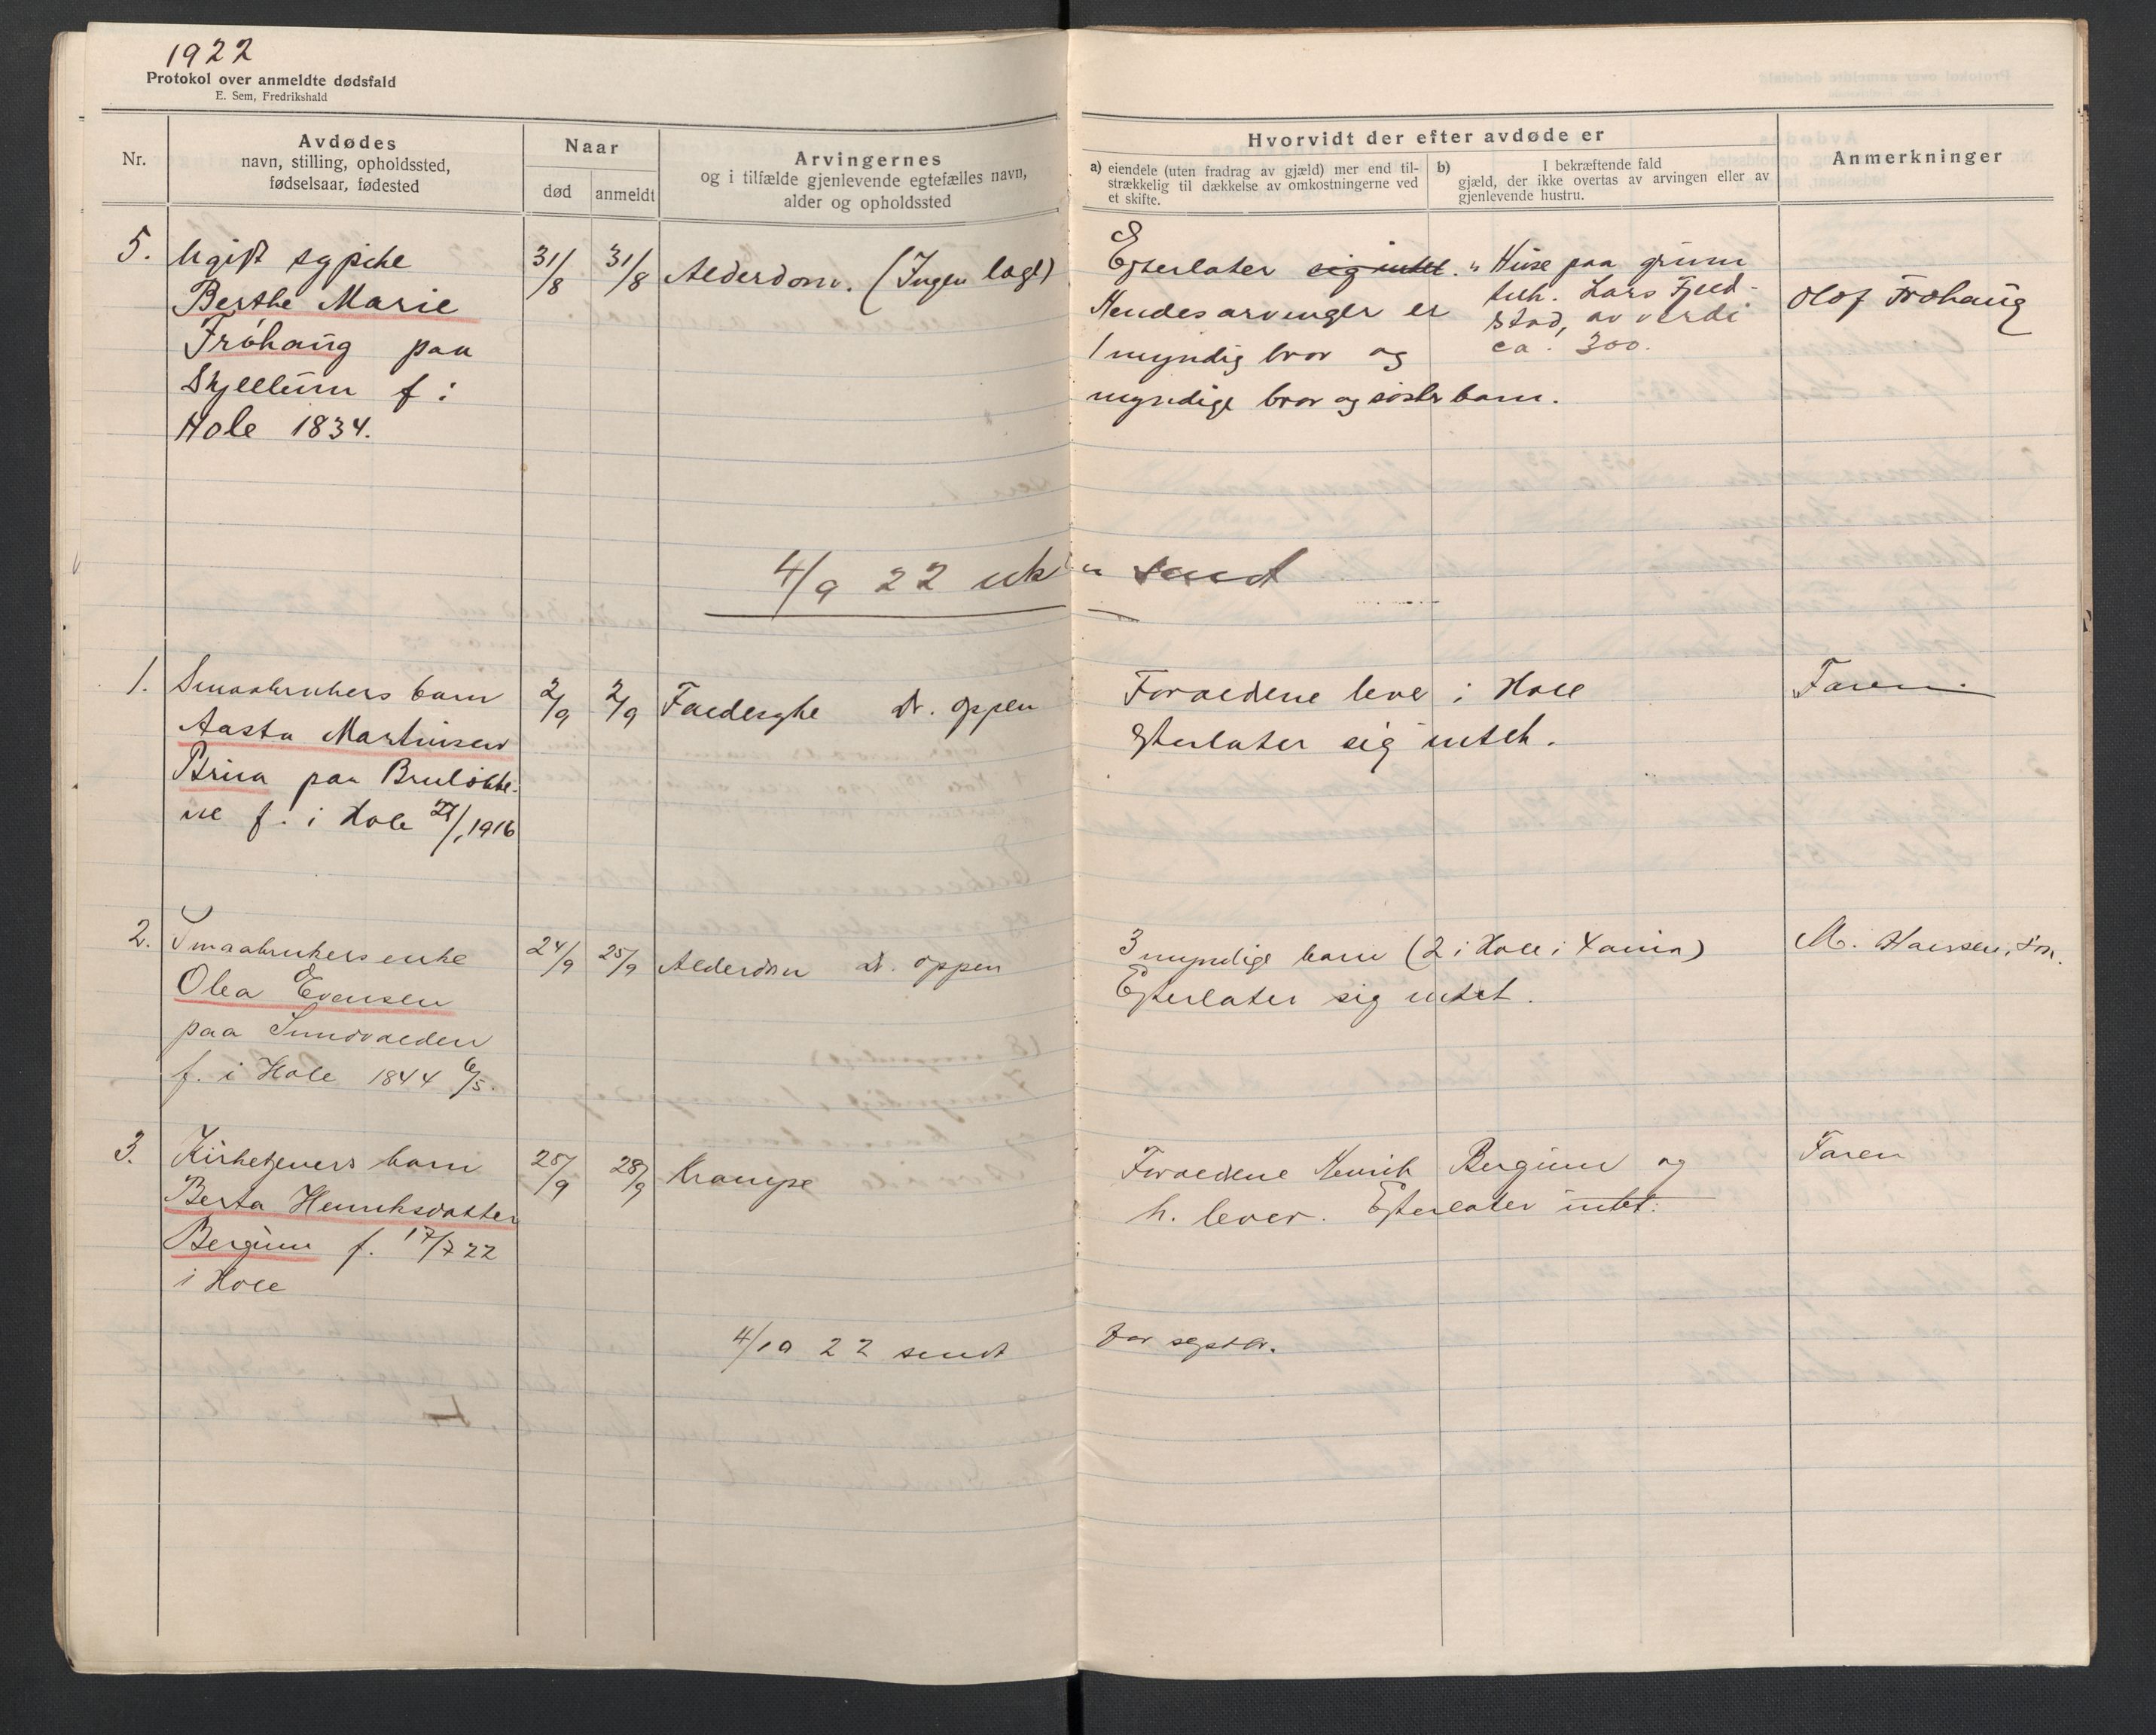 1922
Protokol over anmeldte dødsfald
E. Sem, Fredrikshald
Nr.
Avdødes
navn, stilling, opholdssted,
fødselsaar, fødested
Naar
død
anmeldt
Arvingernes
og i tilfælde gjenlevende egtefælles navn,
alder og opholdssted
Hvorvidt der efter avdøde er
a) eiendele (uten fradrag av gjæld) mer end til-
strækkelig til dækkelse av omkostningerne ved
et skifte.
b) I bekræftende fald
gjæld, der ikke overtas av arvingen eller av
gjenlevende hustru.
Anmerkninger
5.
Ugift sypike
Berthe Marie
Fröhaug paa
Skjellum f i
Hole 1834.
31/8
31/8
Alderdom. (Ingen læge)
Efterlater sig intet.
Hendes arvinger er
1 myndig bror og
myndige bror og søsterbarn.
Huse paa grunn
tilh. Lars Fjeld-
stad, av verdi
ca. 300.
Olof Fröhaug
4/9 22 sendt
1.
Smaabrukers barn
Aasta Martinsen
Brua paa Bruløkke-
ne f. i Hole /1 1916
2/9
2/9
Dr. Oppen
Forældrene leve i Hole
Efterlater sig intet.
Faren.
2.
Smaabrukers enke
Olea Evensen
paa Sundvolden
f. i Hole 1844 6/5.
24/9
25/9
Alderdom Dr. Oppen
3 myndige barn (2 i Hole i Xania)
Efterlater sig intet.
M. Hansen,
3.
Kirketjeners barn
Berta Henriksdatter
Bergum f. 17/7 22
i Hole
25/9
28/9
Krampe
Forældrene Henrik Bergum og
h. lever. Efterlater intet.
Faren
4/10 22 sendt for septbr.